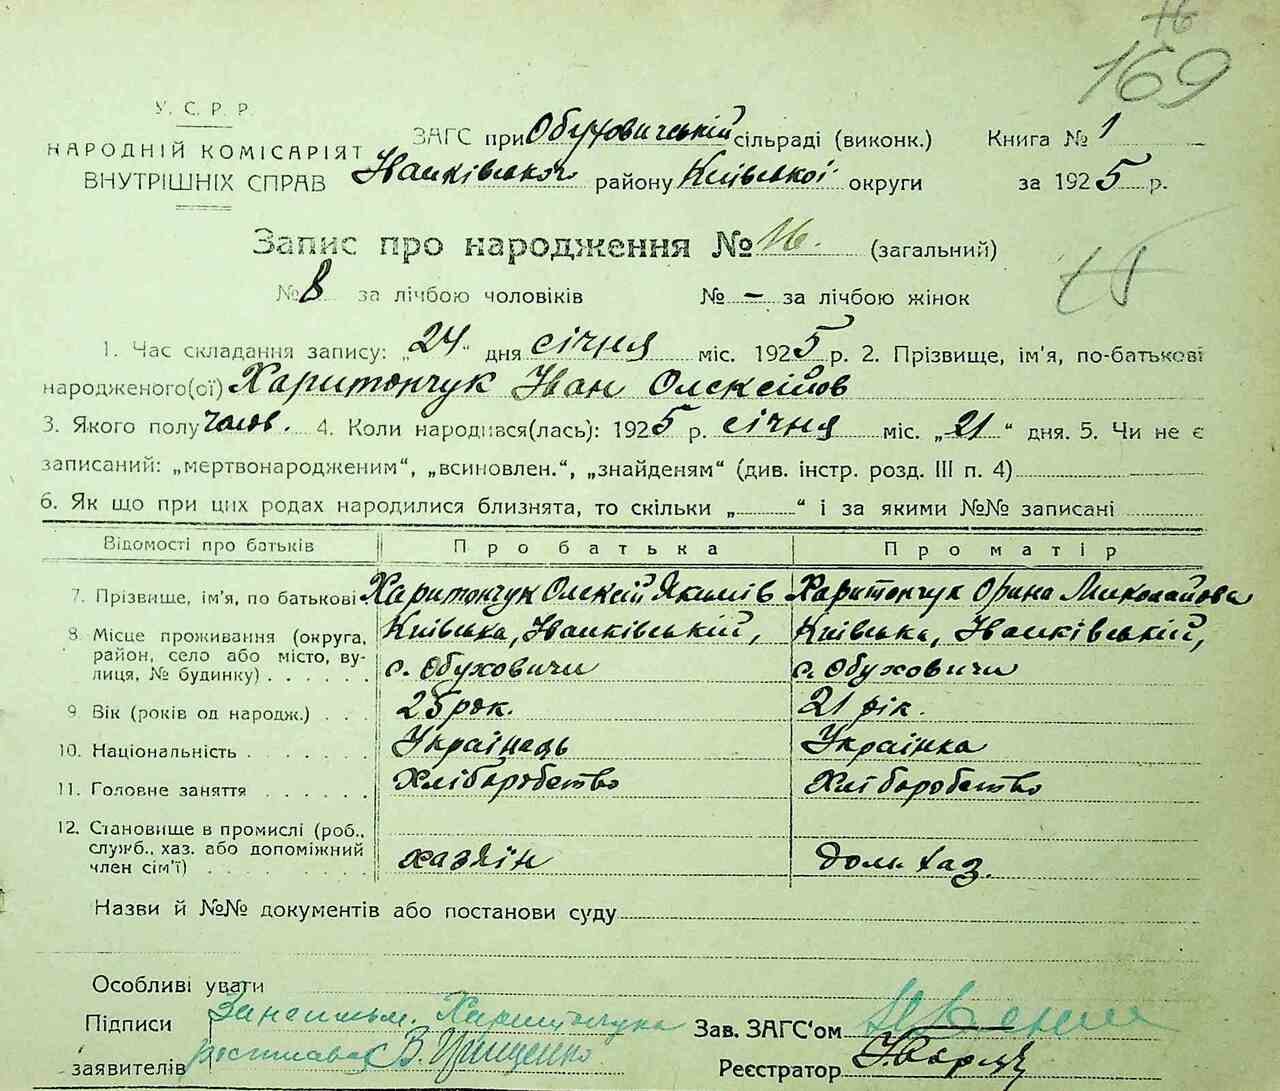 16
169
У. С. Р. Р.
НАРОДНІЙ КОМІСАРІЯТ
ВНУТРІШНІХ СПРАВ
ЗАГС при Обуховичській сільраді (виконк.)
Іванківського району Київської округи
Книга № 1
за 1925 р.
Запис про народження № 16. (загальний)
№ 8 за лічбою чоловіків № – за лічбою жінок
1. Час складання запису: „24“ дня січня міс. 1925 р. 2. Прізвище, ім'я, по-батькові
народженого(ої) Харитончук Іван Олексійов
3. Якого полу чолов. 4. Коли народився(лась): 1925 р. січня міс. „21“ дня. 5. Чи не є
записаний: „мертвонародженим“, „всиновлен.“, „знайденям“ (див. інстр. розд. III п. 4)
6. Як що при цих родах народилися близнята, то скільки „ “ і за якими №№ записані
Відомості про батьків Про батька Про матір
7. Прізвище, ім'я, по батькові Харитончук Олексій Якимів Харитончук Орина Миколайова
8. Місце проживання (округа, район, село або місто, вулиця, № будинку) Київська, Іванківській, Київська, Іванківській,
с. Обуховичи с. Обуховичи
9. Вік (років од народж.) 25 рок. 21 рік.
10. Національність Українець Українка
11. Головне заняття Хліборобство Хліборобство
12. Становище в промислі (роб., служб., хаз. або допоміжний член сім'ї) хазяін дом. хаз.
Назви й №№ документів або постанови суду
Особливі уваги
Підписи
заявителів
Харитончука
В. Грищенко
Зав. ЗАГС‘ом
Реєстратор